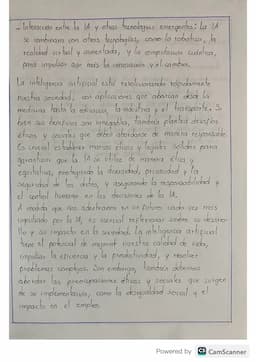 - Interacción entre la IA y otras tecnologías emergentes: La IA
se combinará con otras tecnologías, como la robótica, la
realidad virtual y aumentada, y la computación cuántica,
para impulsar aún más la innovación y el cambio.
La inteligencia artificial está revolucionando rápidamente
nuestra sociedad, con aplicaciones que abarcan desde la
medicina hasta la educación, la industria y el transporte. Si
bien sus beneficios son innegables, también plantea desafíos
éticos y sociales que deben abordarse de manera responsable.
Es crucial establecer marcos éticos y legales sólidos para
garantizar que la IA se utilice de manera ética y
equitativa, protegiendo la privacidad y la
seguridad de los datos, y asegurando la responsabilidad y
el control humano en las decisiones de la IA.
A medida que nos adentramos en un futuro cada vez más
impulsado por la IA, es esencial reflexionar sobre su desarro-
llo y su impacto en la sociedad. La inteligencia artificial
tiene el potencial de mejorar nuestra calidad de vida,
impulsar la eficiencia y la productividad, y resolver
problemas complejos. Sin embargo, también debemos
abordar las preocupaciones éticas y sociales que surgen
de su implementación, como la desigualdad social y el
impacto en el empleo.
Powered by CamScanner